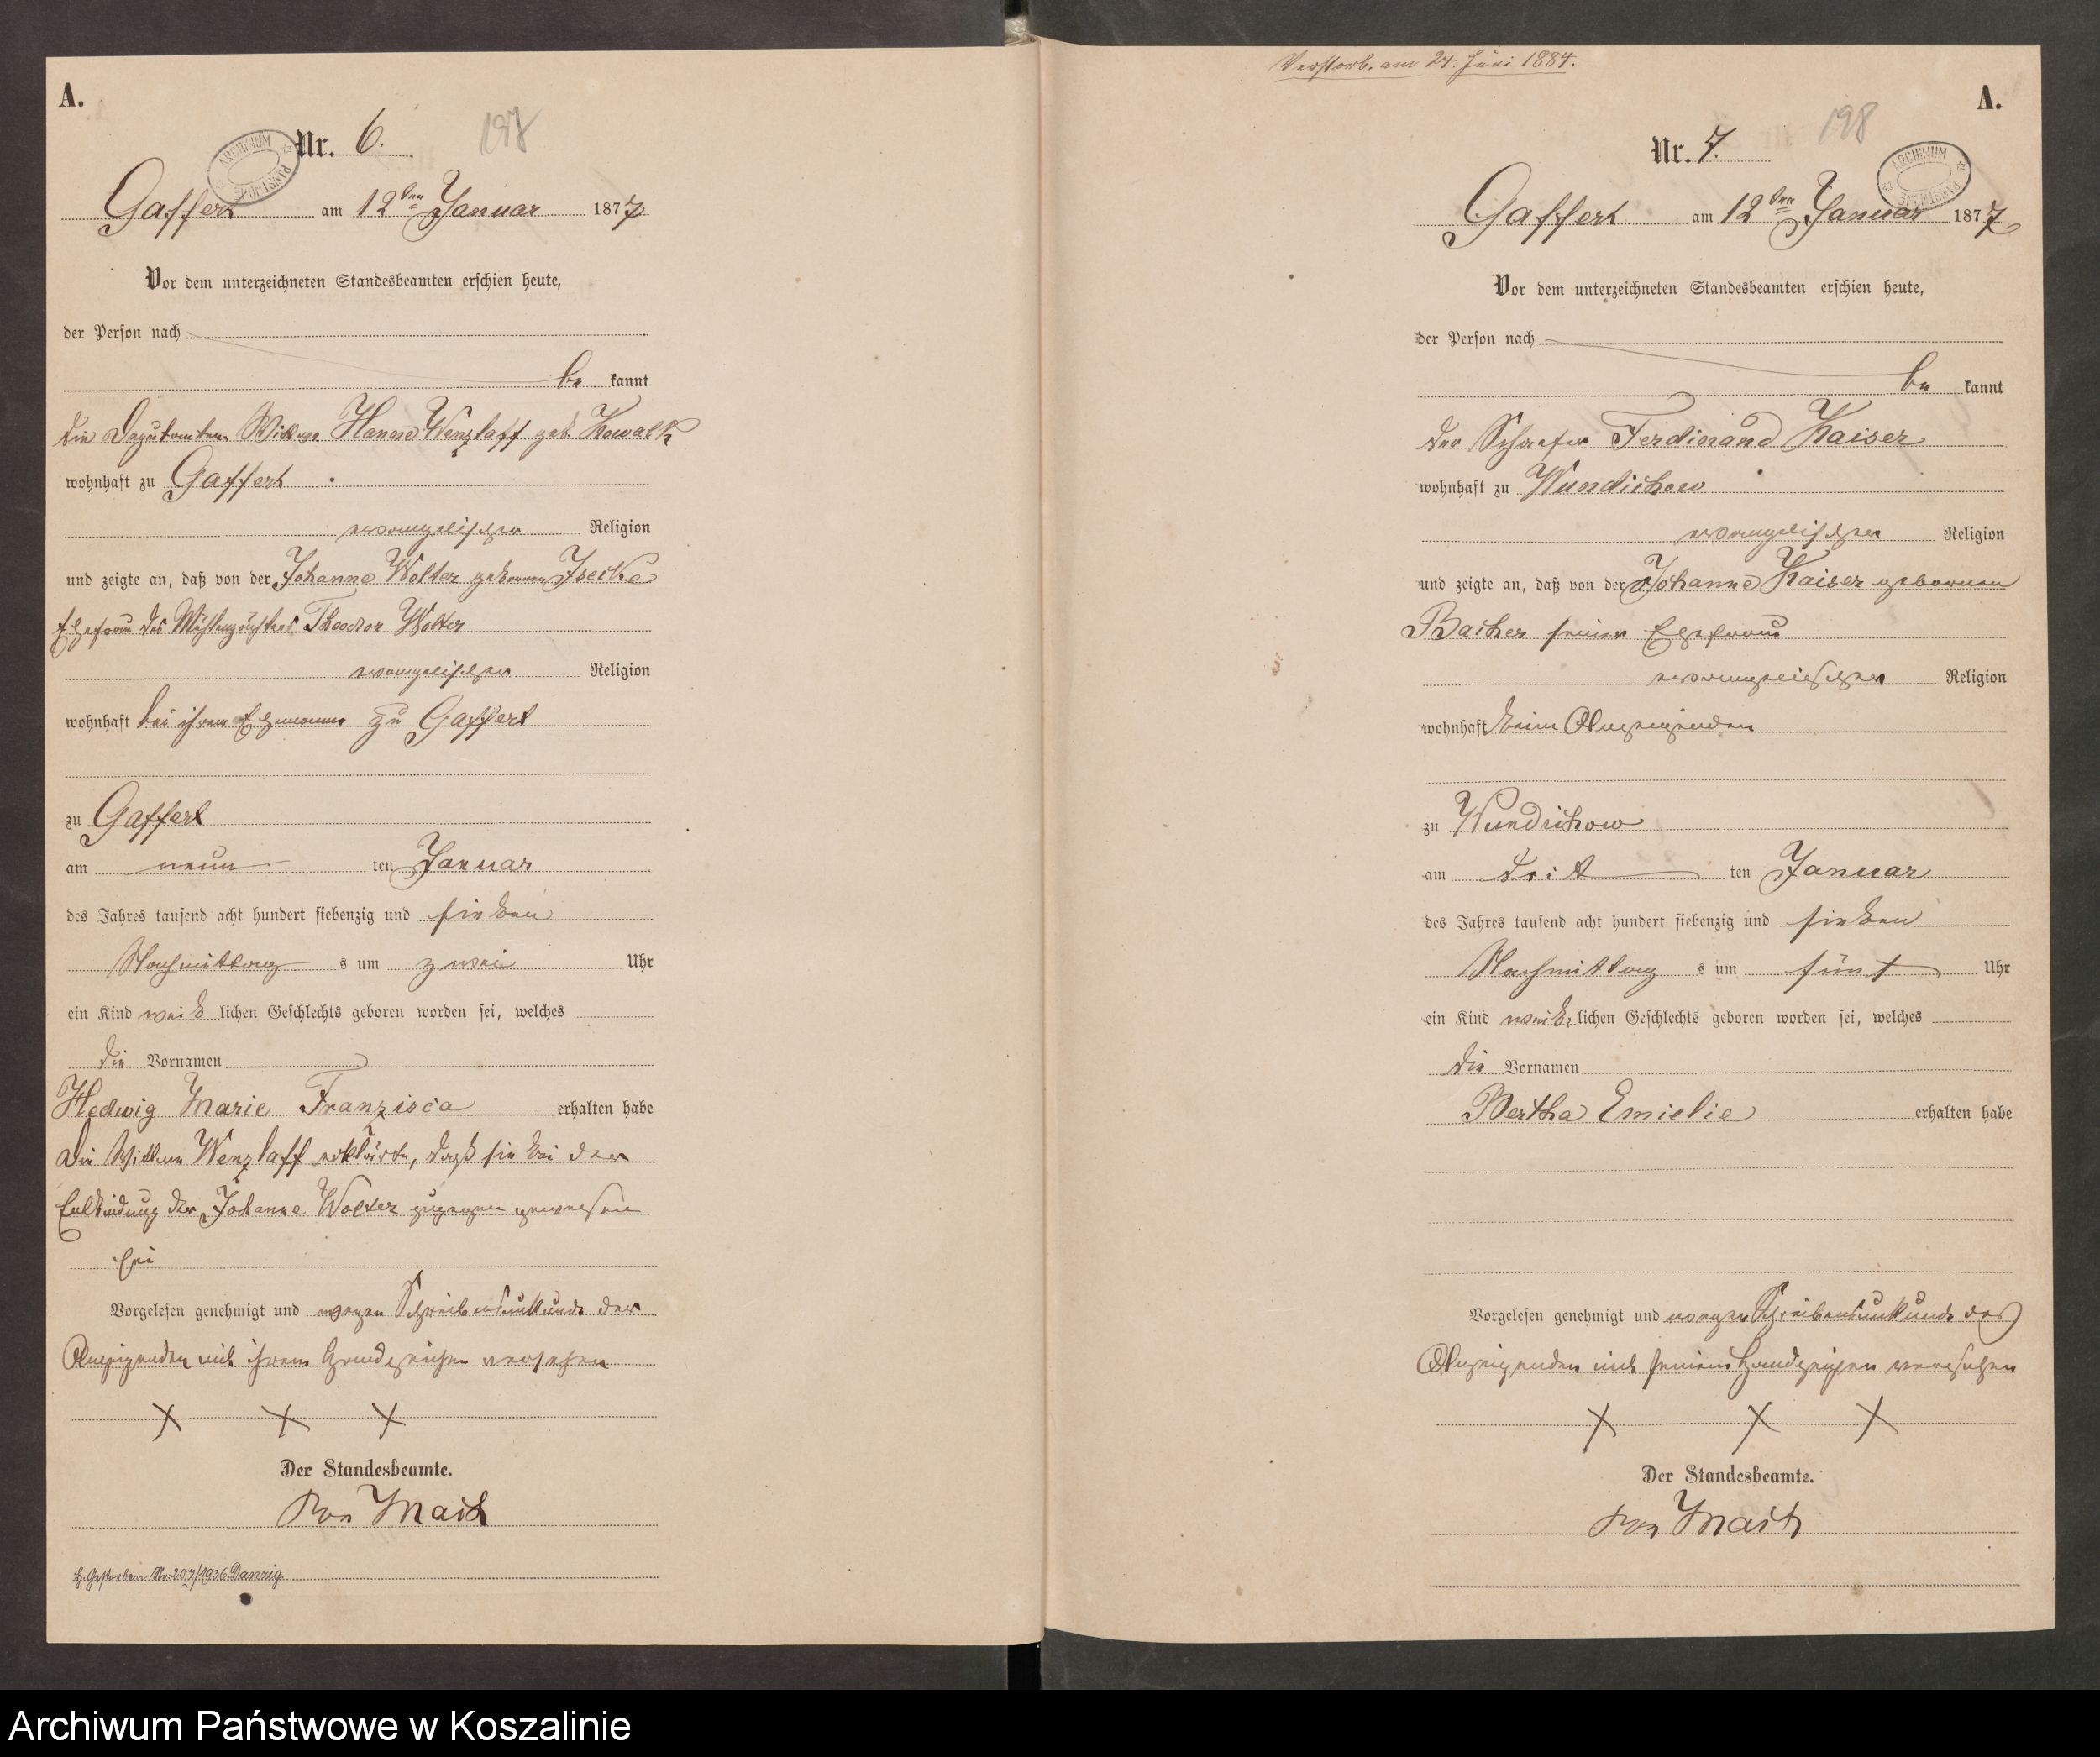 A.
Nr. 6.
197
ARCHIWUM PAŃSTWOWE
Gaffert am 12ten Januar 1877
Vor dem unterzeichneten Standesbeamten erschien heute,
der Person nach
be kannt
die Deputanten Wittwe Hanne Wenzlaff geb Kowalk
wohnhaft zu Gaffert
evangelischer Religion
und zeigte an, daß von der Johanna Wolter geborenen
Ehefrau des Theodor Wolter
evangelischer Religion
wohnhaft bei ihrem Ehemanne zu Gaffert
zu Gaffert
am neun ten Januar
des Jahres tausend acht hundert siebenzig und sieben
Nachmittag s um zwei Uhr
ein Kind weib lichen Geschlechts geboren worden sei, welches
die Vornamen
Hedwig Marie Franzisca erhalten habe
Die Wittwe Wenzlaff erklärte, daß sie bei der
Entbindung der Johanna Wolter zugegen gewesen
sei
Vorgelesen genehmigt und wegen Schreibensunkunde der
Anzeigenden mit ihrem Handzeichen versehen
X X X
Der Standesbeamte.
von Mach
H. Gestorben Nr. 207/1936 Danzig.
Verstorb. am 24. Juni 1884.
A.
Nr. 7.
198
ARCHIWUM PAŃSTWOWE
Gaffert am 12ten Januar 1877
Vor dem unterzeichneten Standesbeamten erschien heute,
der Person nach
be kannt
der Schaefer Ferdinand Kaiser
wohnhaft zu Wundichow
evangelischer Religion
und zeigte an, daß von der Johanne Kaiser geborenen
seiner Ehefrau
evangelischer Religion
wohnhaft beim Anzeigenden
zu Wundichow
am drit ten Januar
des Jahres tausend acht hundert siebenzig und sieben
Nachmittag s um fünf Uhr
ein Kind weib lichen Geschlechts geboren worden sei, welches
die Vornamen
Bertha Emielie erhalten habe
Vorgelesen genehmigt und wegen Schreibensunkunde des
Anzeigenden mit seinem Handzeichen versehen
X X X
Der Standesbeamte.
von Mach
Archiwum Państwowe w Koszalinie